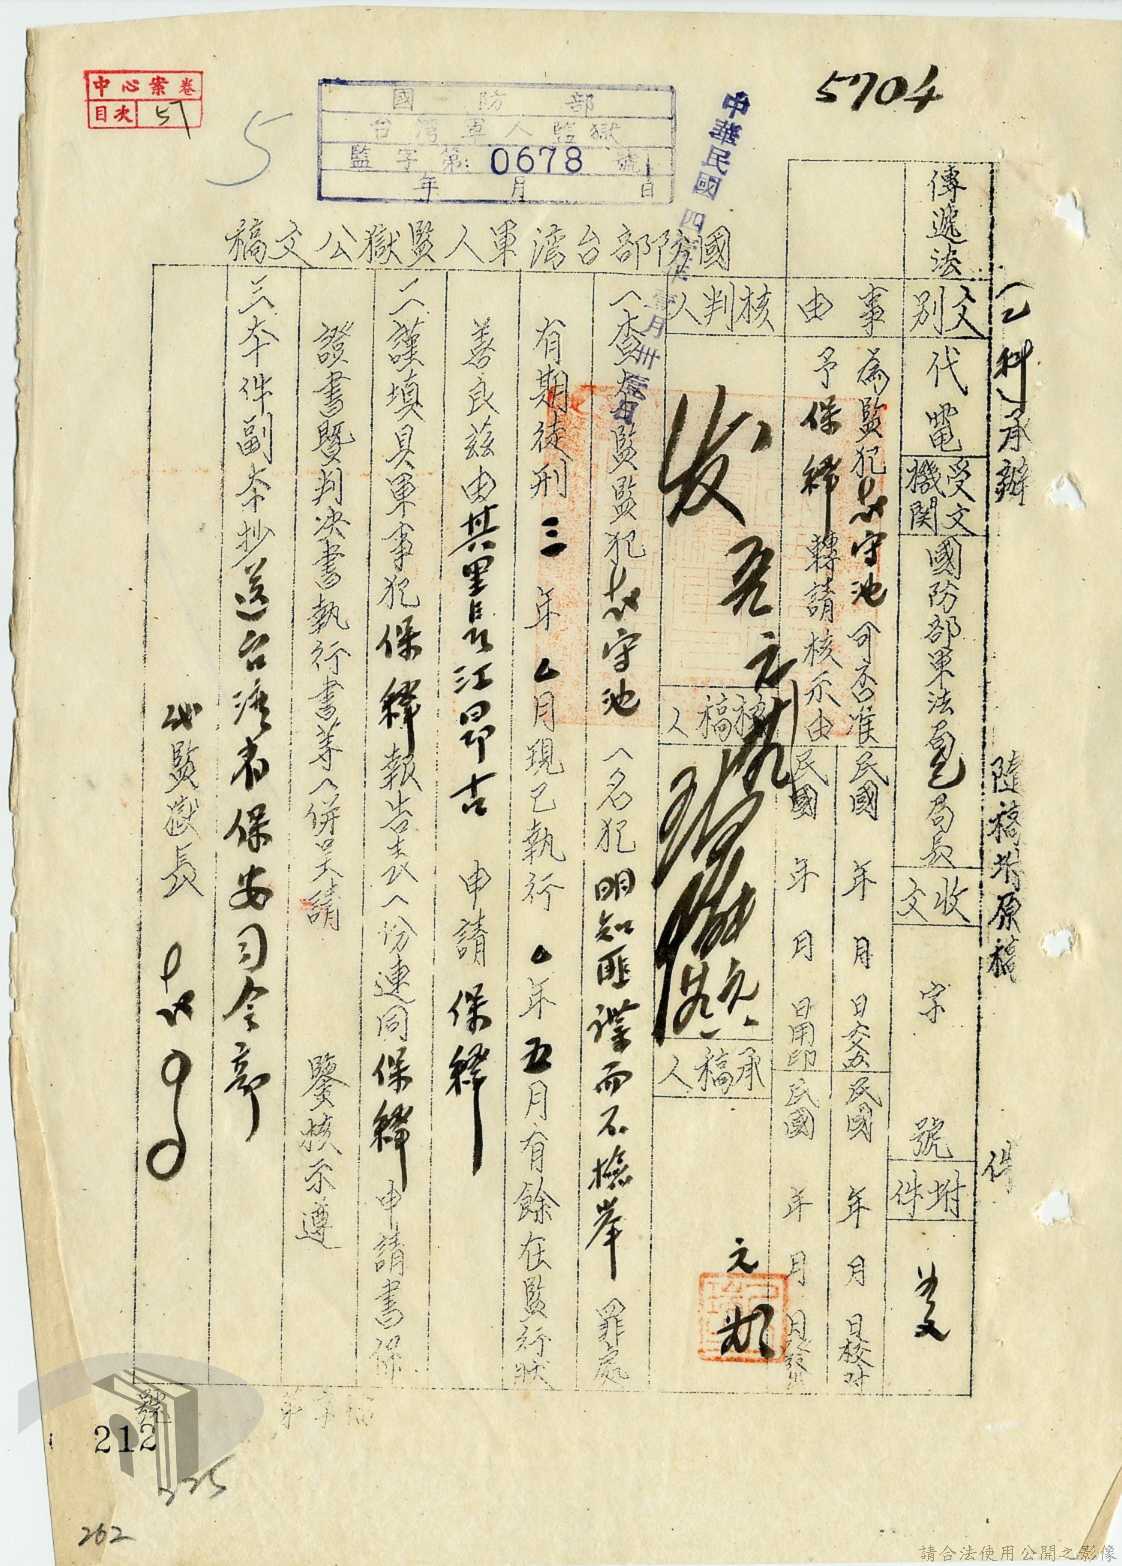 5704
中心案卷
目次 57
5
國防部
台灣軍人監獄
監字第 0678 號
年 月 日
中華民國四
國防部台灣軍人監獄公文稿
(乙科)承辦
隨稿附原稿 件
傳遞法
文別 代電
受文機關 國防部軍法局包局長
收文 字 號
附件 如文
事由 為監犯 守池可否准
予保釋轉請核示由
民國 年 月 日交辦
民國 年 月 日校對
民國 年 月 日用印
民國 年 月 日發
核判人 發
核稿人
承稿人
一、查本監監犯 守池一名犯明知匪諜而不檢舉罪處
有期徒刑三年 月現已執行 年五月有餘在監行狀
善良茲由其里長江昂吉申請保釋
二、謹填具軍事犯保釋報告表一份連同保釋申請書保
證書暨判決書執行書等一併呈請
鑒核示遵
三、本件副本抄送台灣省保安司令部
監獄長
號
字第
212
225
262
請合法使用公開之影像